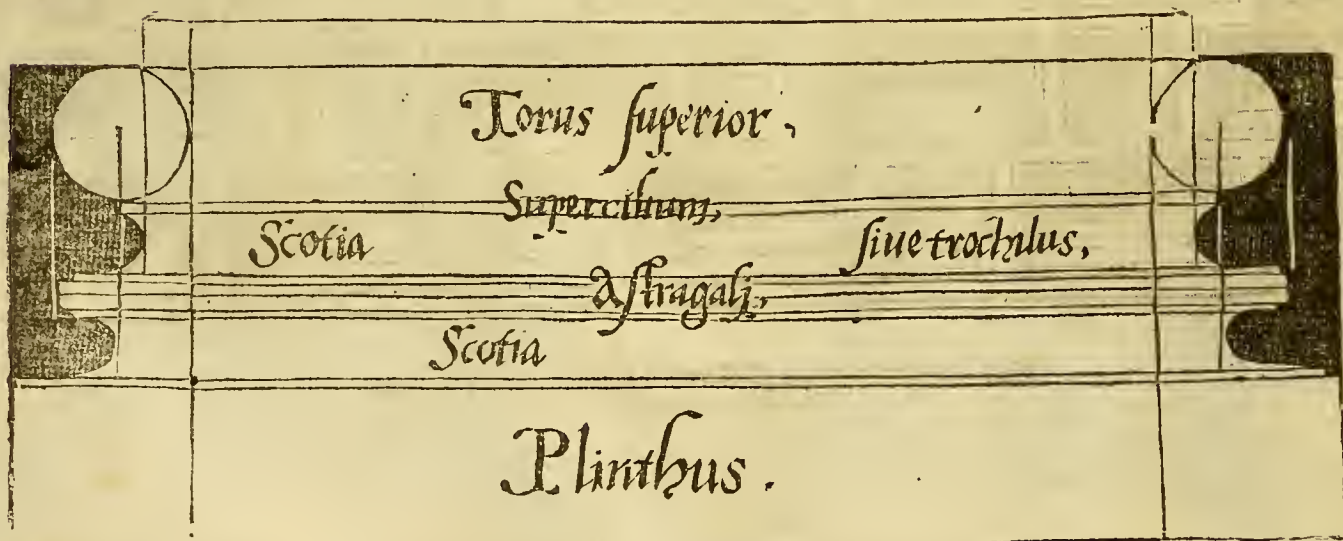 Torus ſuperior,
Supercilium,
Scotia ſiue trochilus,
Aſtragali,
Scotia
Plinthus.